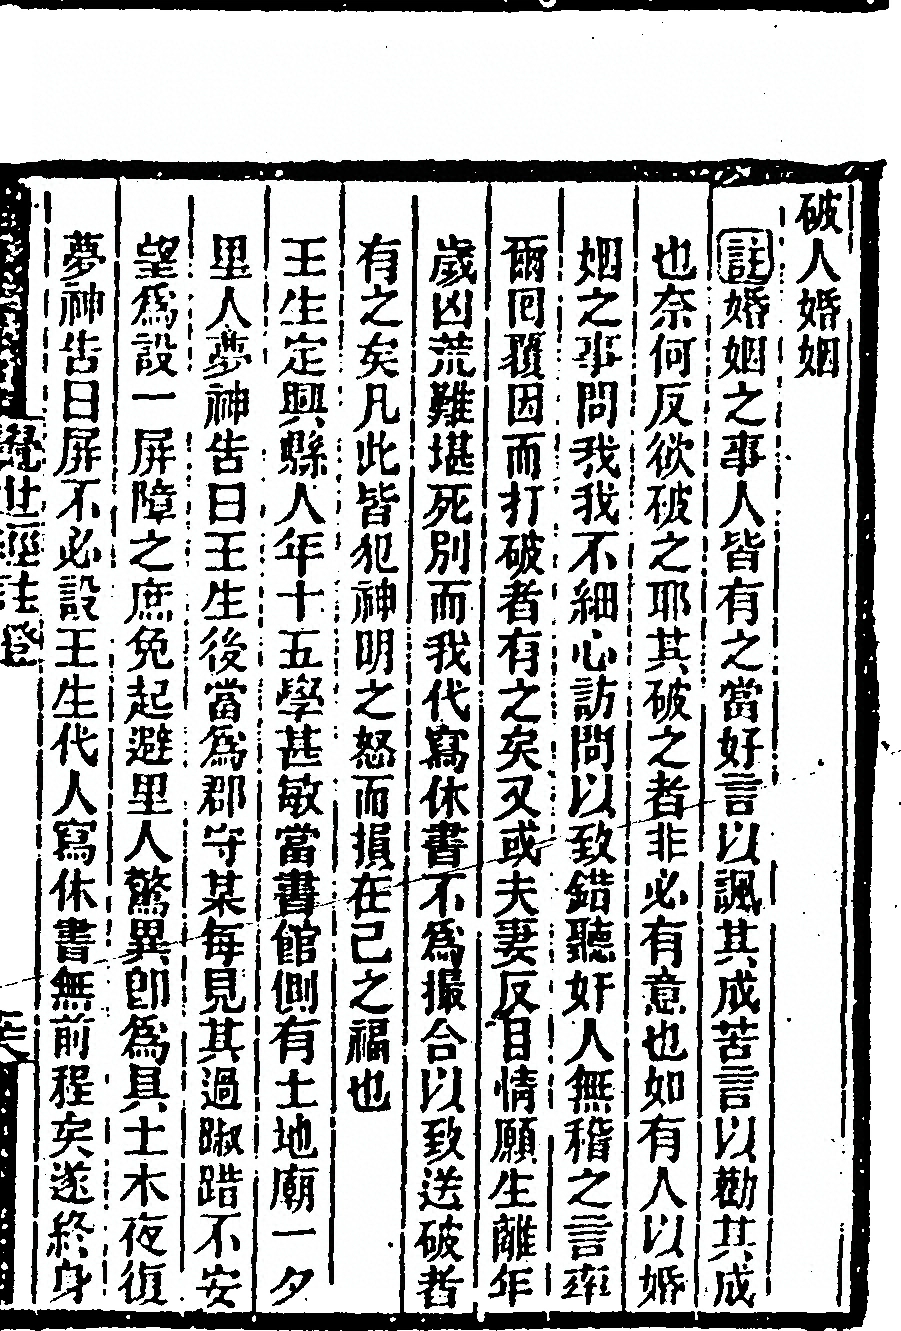 破人婚姻
註婚姻之事人皆有之當好言以諷其成苦言以勸其成
也奈何反欲破之耶其破之者非必有意也如有人以婚
姻之事問我我不細心訪問以致錯聽奸人無稽之言率
爾回覆因而打破者有之矣又或夫妻反目情願生離年
歲凶荒難堪死別而我代寫休書不爲撮合以致送破者
有之矣凡此皆犯神明之怒而損在己之福也
王生定興縣人年十五學甚敏當書館側有土地廟一夕
里人夢神告曰王生後當爲郡守某每見其過踧踖不安
望爲設一屏障之庶免起避里人驚異卽爲具土木夜復
夢神告曰屏不必設王生代人寫休書無前程矣遂終身
覺世經註證